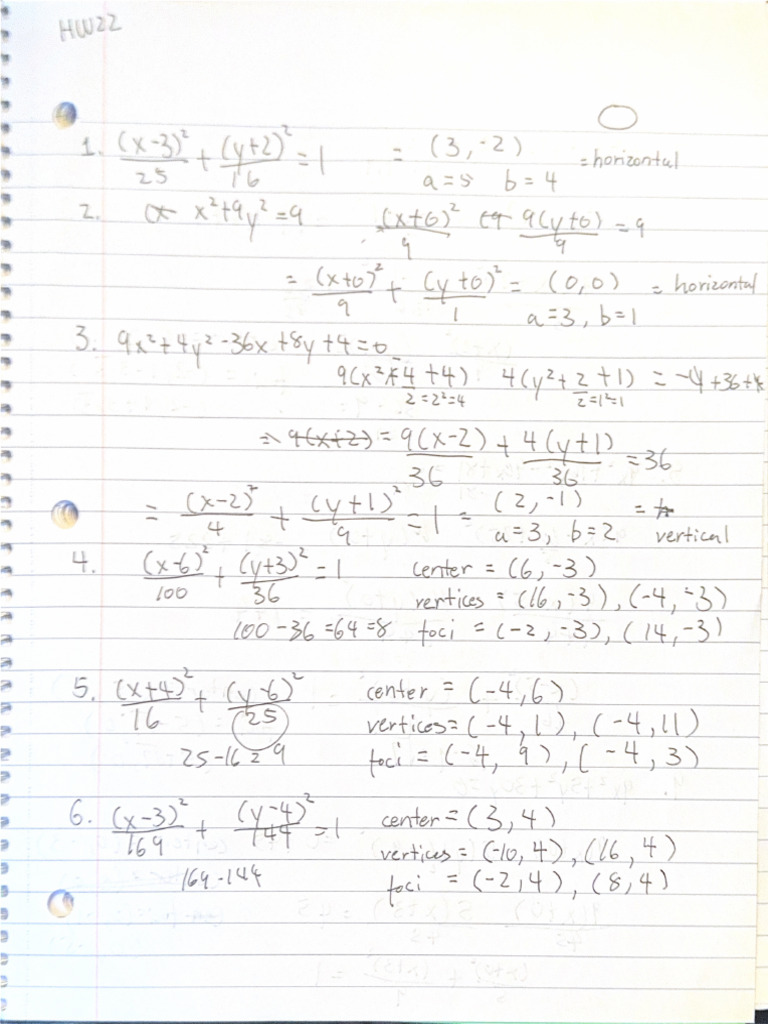 HW22
1. (x-3)²/25 + (y+2)²/16 = 1 = (3, -2) = horizontal
a = 5 b = 4
2. x² + 9y² = 9 (x+0)²/9 9(y+0)/9 = 9
= (x+0)²/9 + (y+0)²/1 = (0,0) = horizontal
a = 3, b = 1
3. 9x² + 4y² - 36x + 8y + 4 = 0
9(x² - 4 + 4) 4(y² + 2 + 1) = -4 + 36 + 4
2 = 2² = 4 2 = 1² = 1
⇒ 9(x+2) = 9(x-2)/36 + 4(y+1)/36 = 36
= (x-2)²/4 + (y+1)²/9 = 1 = (2, -1) = vertical
a = 3, b = 2
4. (x-6)²/100 + (y+3)²/36 = 1 center = (6, -3)
vertices = (16, -3), (-4, -3)
100 - 36 = 64 = 8 foci = (-2, -3), (14, -3)
5. (x+4)²/16 + (y-6)²/25 center = (-4, 6)
vertices = (-4, 1), (-4, 11)
25 - 16 = 9 foci = (-4, 9), (-4, 3)
6. (x-3)²/169 + (y-4)²/144 = 1 center = (3, 4)
vertices = (-10, 4), (16, 4)
169 - 144 foci = (-2, 4), (8, 4)